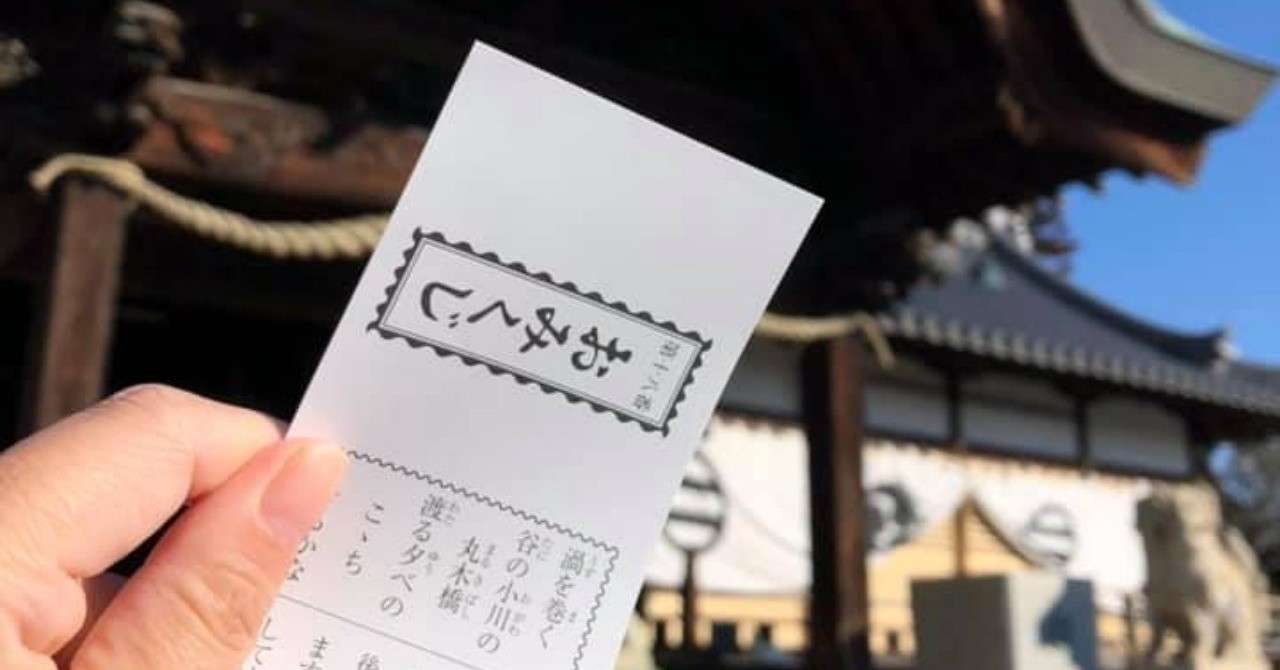 第十八番
おみくじ
渦を巻く
谷の小川の
丸木橋
渡る夕べの
こゝち
かな
後
ます
して